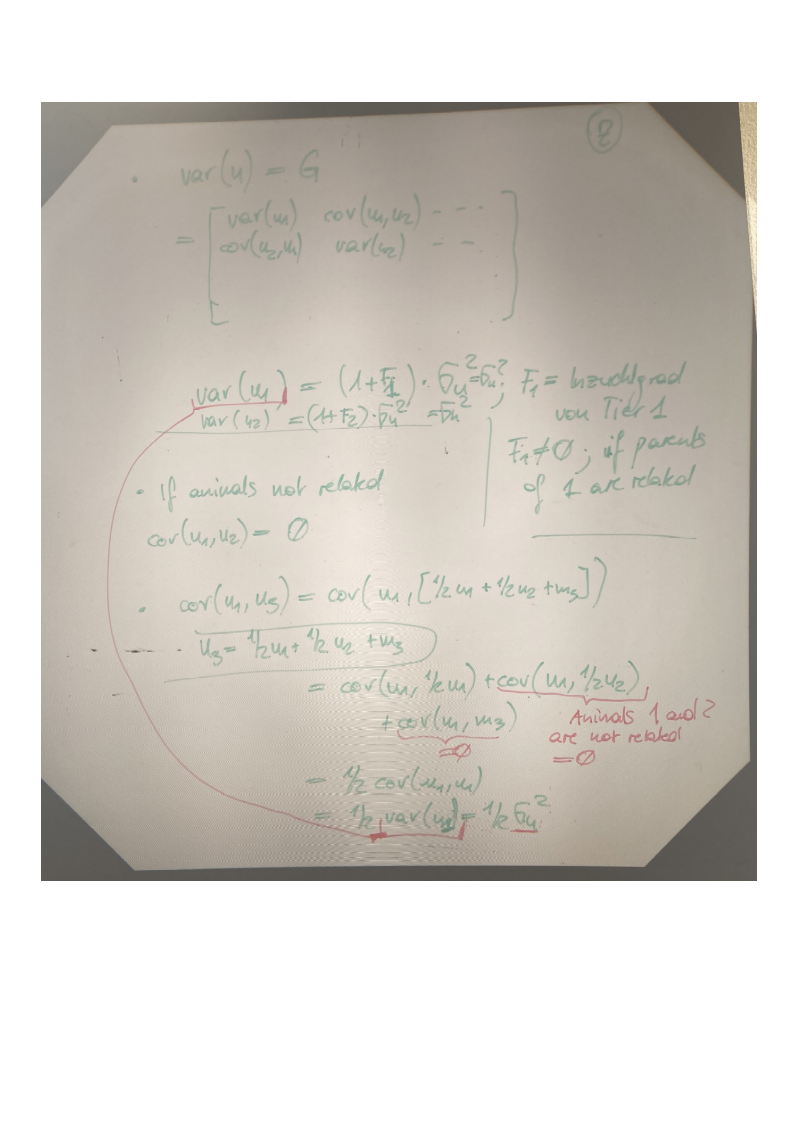 ②
· var(u) = G
= [ var(u₁) cov(u₁,u₂) - - -
cov(u₂,u₁) var(u₂) - - ]
var(u₁) = (1+F₁) · σᵤ² = σᵤ² ; F₁ = Inzuchtgrad
von Tier 1
var(u₂) = (1+F₂) · σᵤ² = σᵤ²
F₁ ≠ ∅ ; if parents
of 1 are related
· If animals not related
cov(u₁,u₂) = ∅
· cov(u₁, u₃) = cov(u₁, [1/2 u₁ + 1/2 u₂ + m₃])
u₃ = 1/2 u₁ + 1/2 u₂ + m₃
= cov(u₁, 1/2 u₁) + cov(u₁, 1/2 u₂)
+ cov(u₁, m₃)
= ∅
Animals 1 and 2
are not related
= ∅
= 1/2 cov(u₁,u₁)
= 1/2 var(u₁) = 1/2 σᵤ²